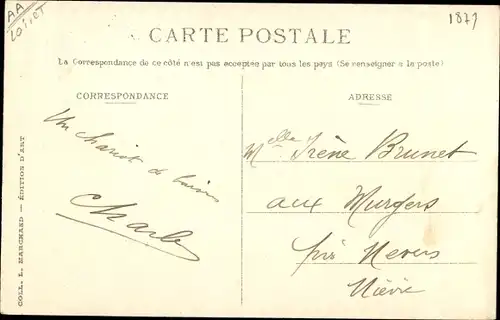 AA
Loiret
1877
CARTE POSTALE
La Correspondance de ce côté n'est pas acceptée par tous les pays (Se renseigner à la poste)
CORRESPONDANCE
ADRESSE
Un chariot de
Charles
Melle Irène Brunet
aux Murgers
près Nevers
Nièvre
COLL. L. MARCHAND — ÉDITION D'ART